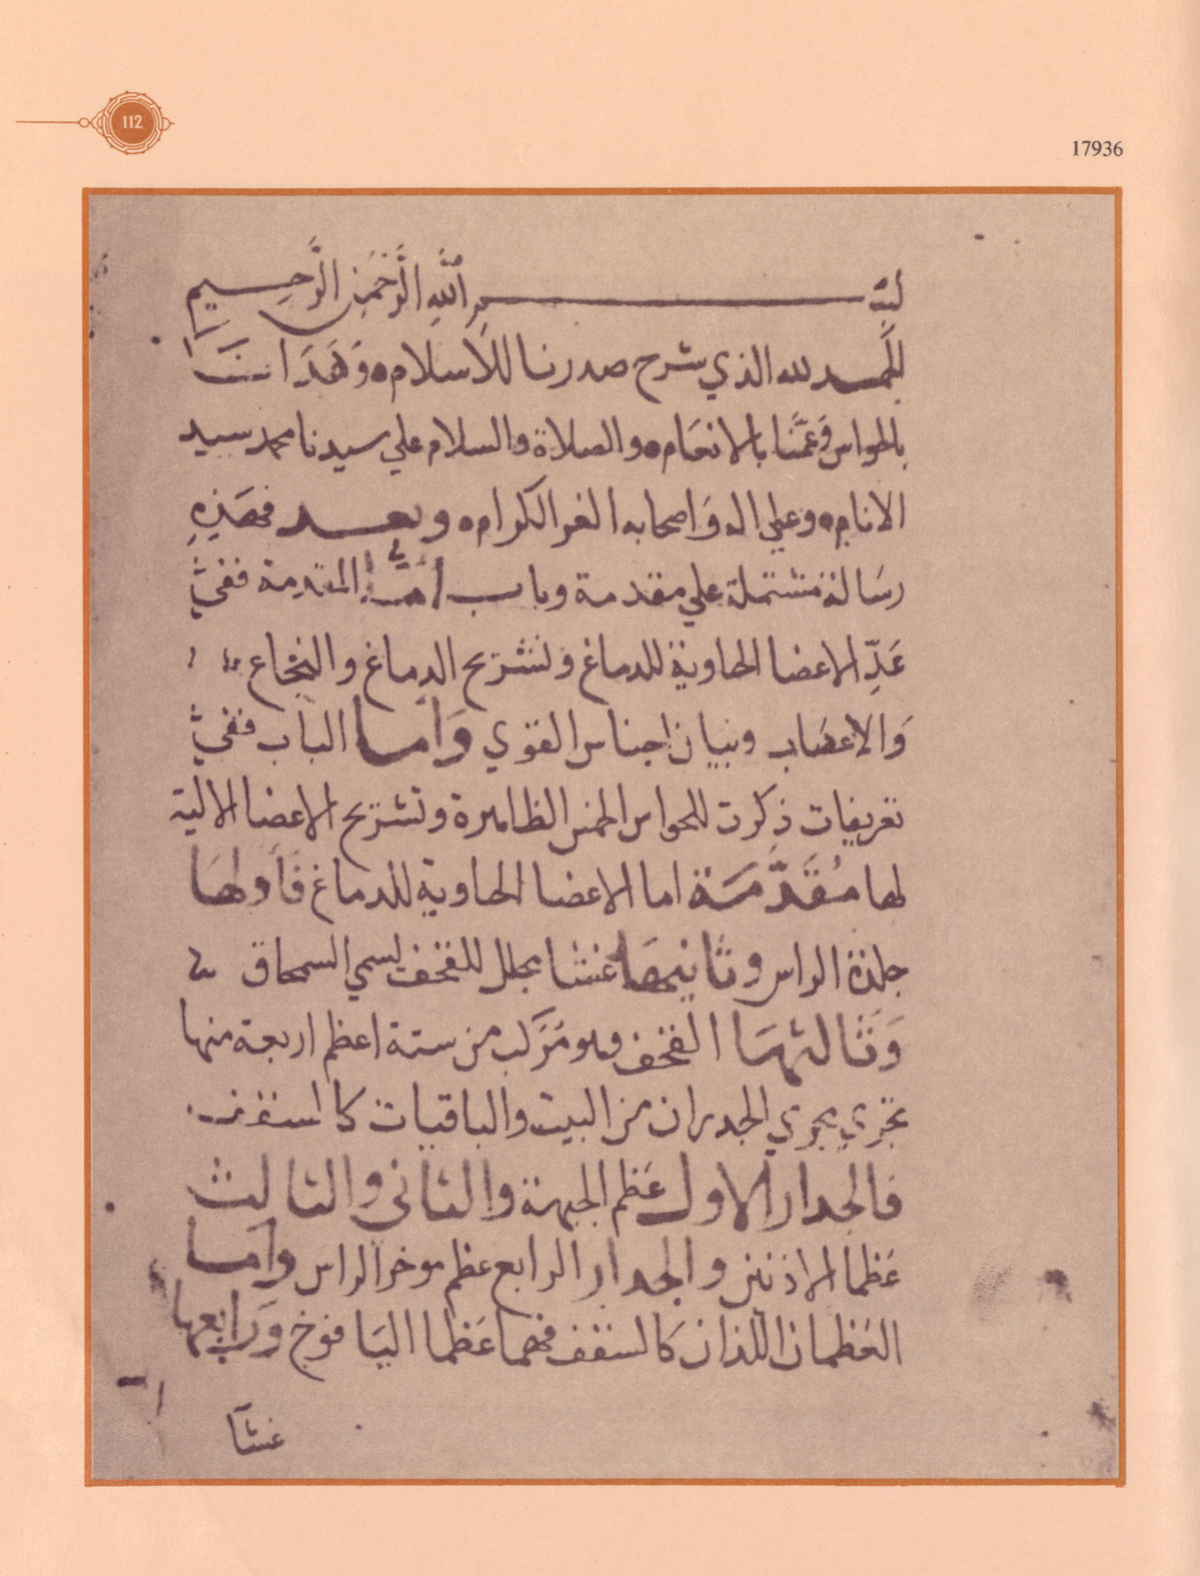 112
17936
بسم الله الرَّحمٰنِ الرَّحِيمِ
الحمد لله الذي شرح صدرنا للاسلام ه وَهَدَاننَا
بالحواس وَعَمَّنَا بالانعَام ه والصلاة والسلام علي سيدنا محمد سيد
الانام ه وعلي اله وَاصحابه الغر الكرام ه وبعد فهَذِهِ
رسَالة مشتملة علي مقدمة وباب أمَّا المقدمة ففي
عَدِّ الاعضا الحاوية للدماغ وتشريح الدماغ والنخاع
وَالاعصَاب وبيان اجناس القوي وَاما الباب ففي
تعريفات ذكرت للحواس الخمس الظاهرة وتشريح الاعضا الالية
لها مُقَدِّمَة اما الاعضا الحاوية للدماغ فَاَولهَا
جلدة الراس وثانيهَا غشا يجلل للقحف يسمي السمحاق
وَثَالثهَا القحف وهو مُرَكب من ستة اعظم اربعة منها
تجري مجري الجدران من البيت والباقيات كالسقف
فالجدار الاول عَظم الجبهة والثاني والثالث
عَظما الاذنين والجدار الرابع عظم موخر الراس وَاما
العَظمان اللذان كَالسقف فهما عَظما اليَافوخ وَرَابعها
غشآ